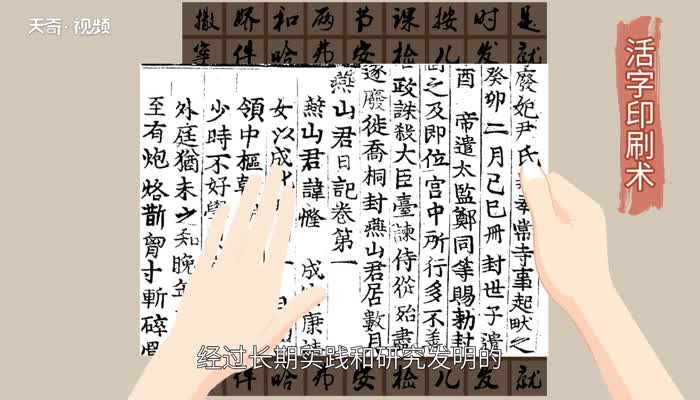 天奇·视频
撒娇和两节课按时是
件哈弗安检儿发就
活字印刷术
廢妃尹氏 常寺事起畎之
癸卯二月己巳冊封世子遣
酉 帝遣太監鄭同等賜勅封
之及即位宮中所行多不善
政誅殺大臣臺諫侍從殆盡
逐廢徙喬桐封燕山君居數月
燕山君日記卷第一
燕山君諱㦕 成 康靖
女以成
領中樞
少時不好學
外庭猶未之知晚年
至有炮烙斮胷寸斬碎
经过长期实践和研究发明的
件哈弗安检儿发就